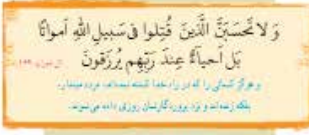 وَ لا تَحسَبَنَّ الَّذينَ قُتِلوا فی سَبیلِ اللهِ اَمواتًا
بَل اَحیاءٌ عِندَ رَبِّهِم یُرزَقونَ آل عمران، ۱۶۹
و هرگز کسانی را که در راه خدا کشته شده‌اند، مرده مپندار،
بلکه زنده‌اند و نزد پروردگارشان روزی داده می‌شوند.